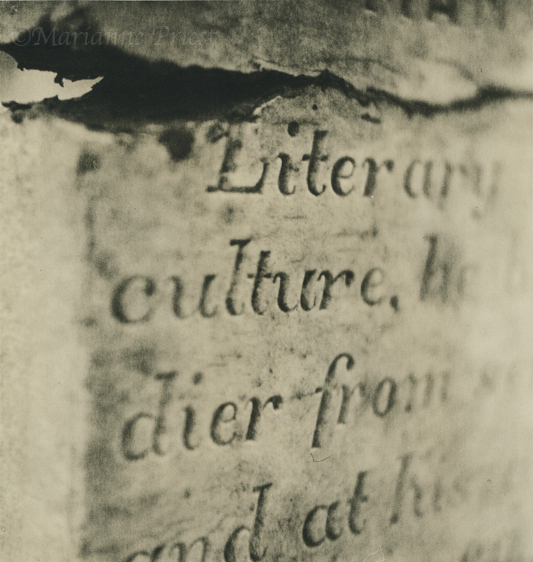 ©Marianne Priest
Literary
culture, he
dier from
and at his